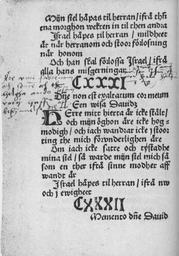 Mijn siel håpas til herran / ifrå thẽ
ena morghon wekten in til then andra
Israel håpes til herran / mildheet
är när herranom och stoor förlosning
när honom
Och han skal förlossa Israel / ifrå
alla hans misgerningar
CXXXI
Dñe non est exaltatum cor meum
Een wisa Dauids
HErre mitt hierta är icke stålt /
och mijn öghon är icke hög=
modigh / och iach wandrar icke j stoor
ting the mich förwnderligh äre
Om iach icke satte och rystadhe
mina siel / så warde mijn siel mich så
som en ther ifrå sinne modher aff
wand är
Israel håpes til herran / ifrå nw
och j ewigheet
CXXXII
Memento dñe Dauid